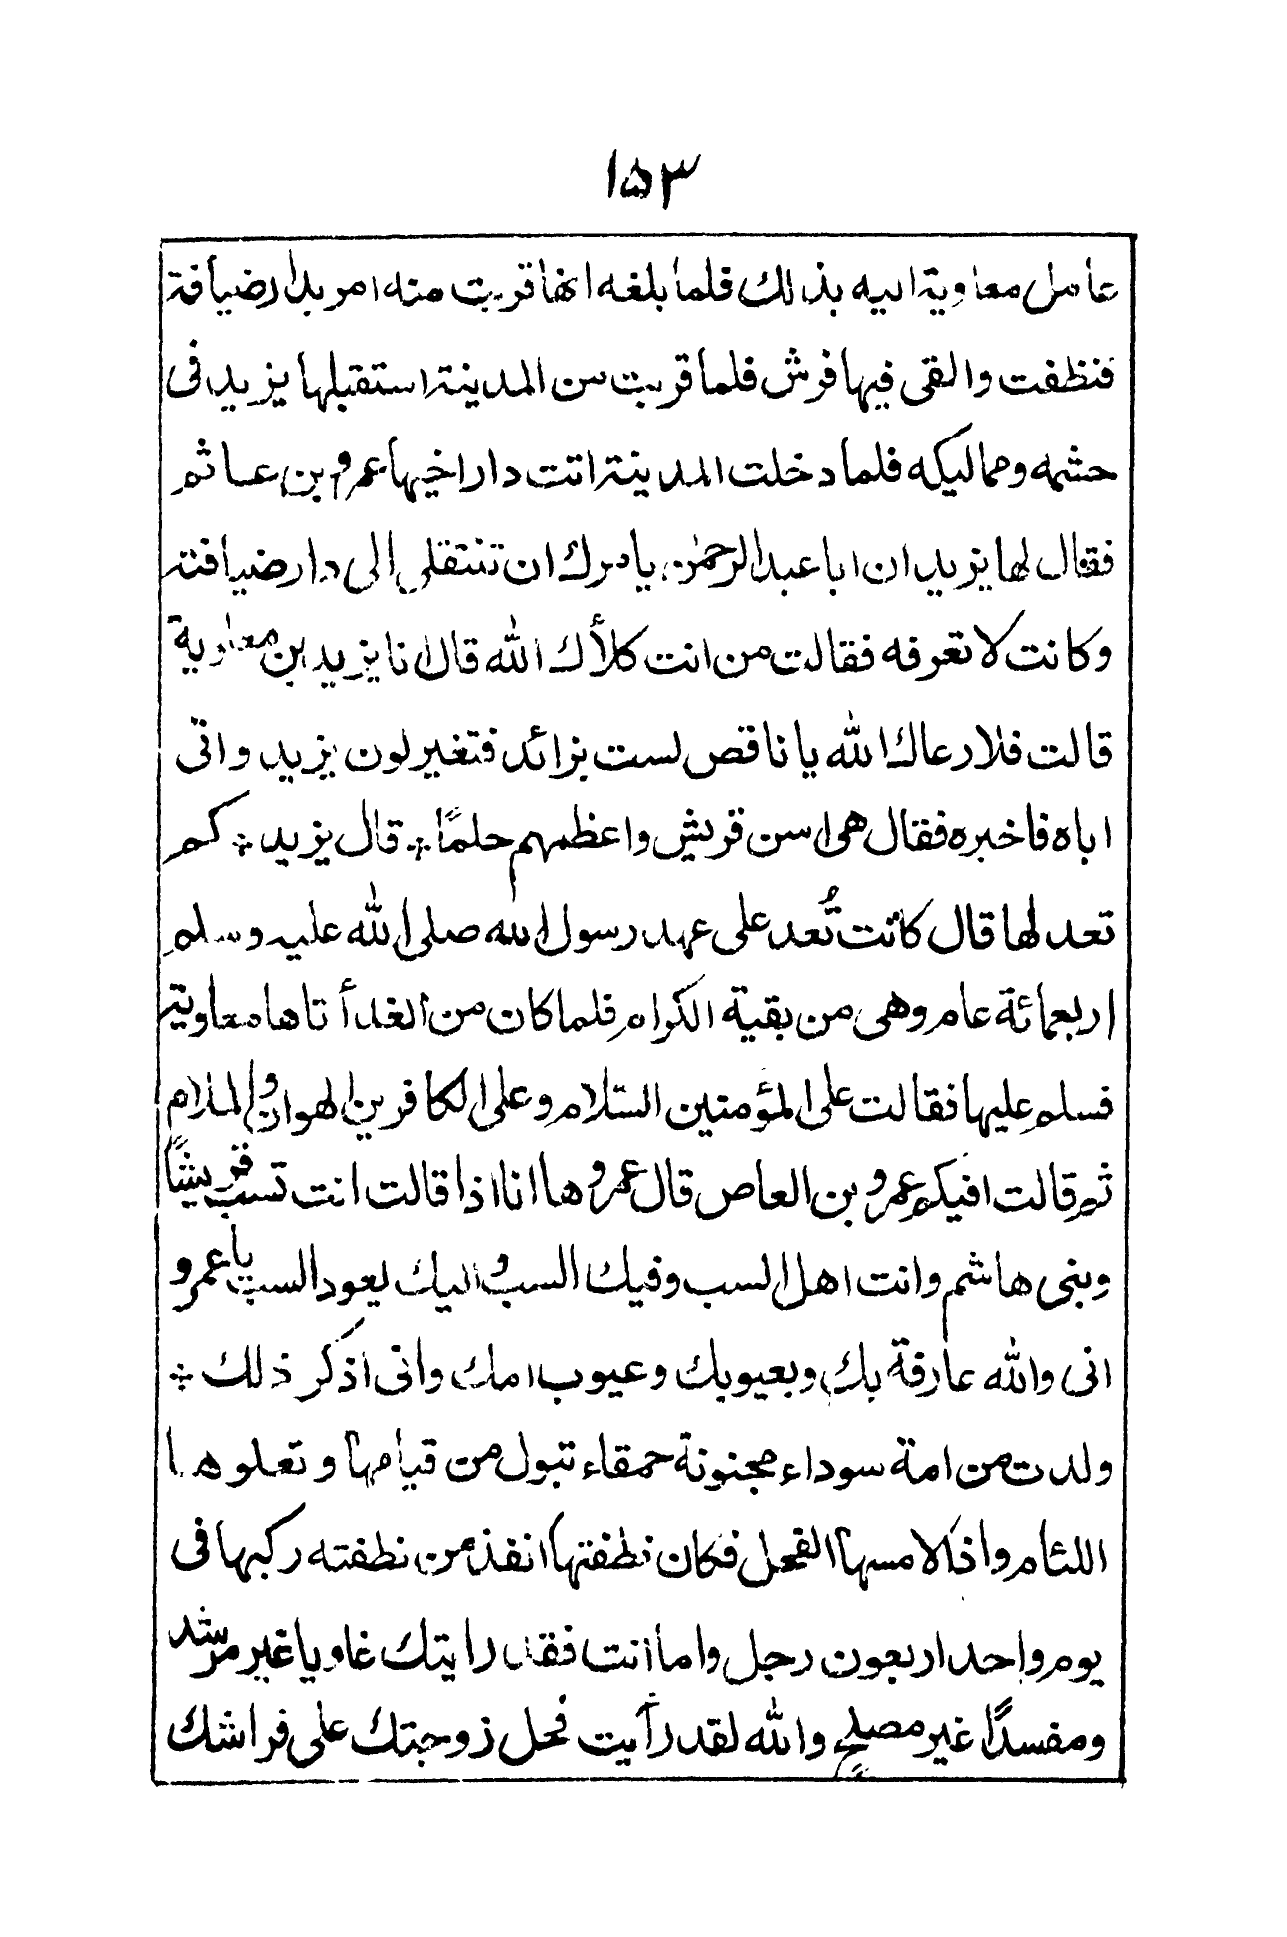 ١٥٣
عامل معاوية اليه بذلك فلما بلغه انها قربت منه امر بدار ضيافة
فنظفت والقى فيها فرش فلما قربت من المدينة استقبلها يزيد فى
حشمه ومماليكه فلما دخلت المدينة اتت دار اخيها عمرو بن عاثم
فقال لها يزيد ان ابا عبد الرحمٰن يامرك ان تنتقلى الى دار ضيافته
وكانت لا تعرفه فقالت من انت كلأك الله قال انا يزيد بن معاوية
قالت فلا رعاك الله يا ناقص لست بزائد فتغير لون يزيد واتى
اباه فاخبره فقال هى اسن قريش واعظمهم حلمًا * قال يزيد * كم
تعد لها قال كانت تُعد على عهد رسول الله صلى الله عليه وسلم
اربعمائة عام وهى من بقية الكرام فلما كان من الغد أتاها معاوية
فسلم عليها فقالت على المؤمنين السّلام وعلى الكافرين الهوان والملام
ثم قالت افيكم عمرو بن العاص قال عمرو ها انا اذا قالت انت تسب قريشًا
وبنى هاشم وانت اهل السب وفيك السب واليك يعود السب يا عمرو
انى والله عارفة بك وبعيوبك وعيوب امك وانى اذكر ذلك *
ولدت من امة سوداء مجنونة حمقاء تبول من قيامها وتعلوها
اللئام واذا لامسها الفحل فكان نطفتها انفذ من نطفته ركبها فى
يوم واحد اربعون رجل واما أنت فقد رايتك غاويا غير مرشد
ومفسدًا غير مصلحٍ والله لقد رأيت فحل زوجتك على فراشك